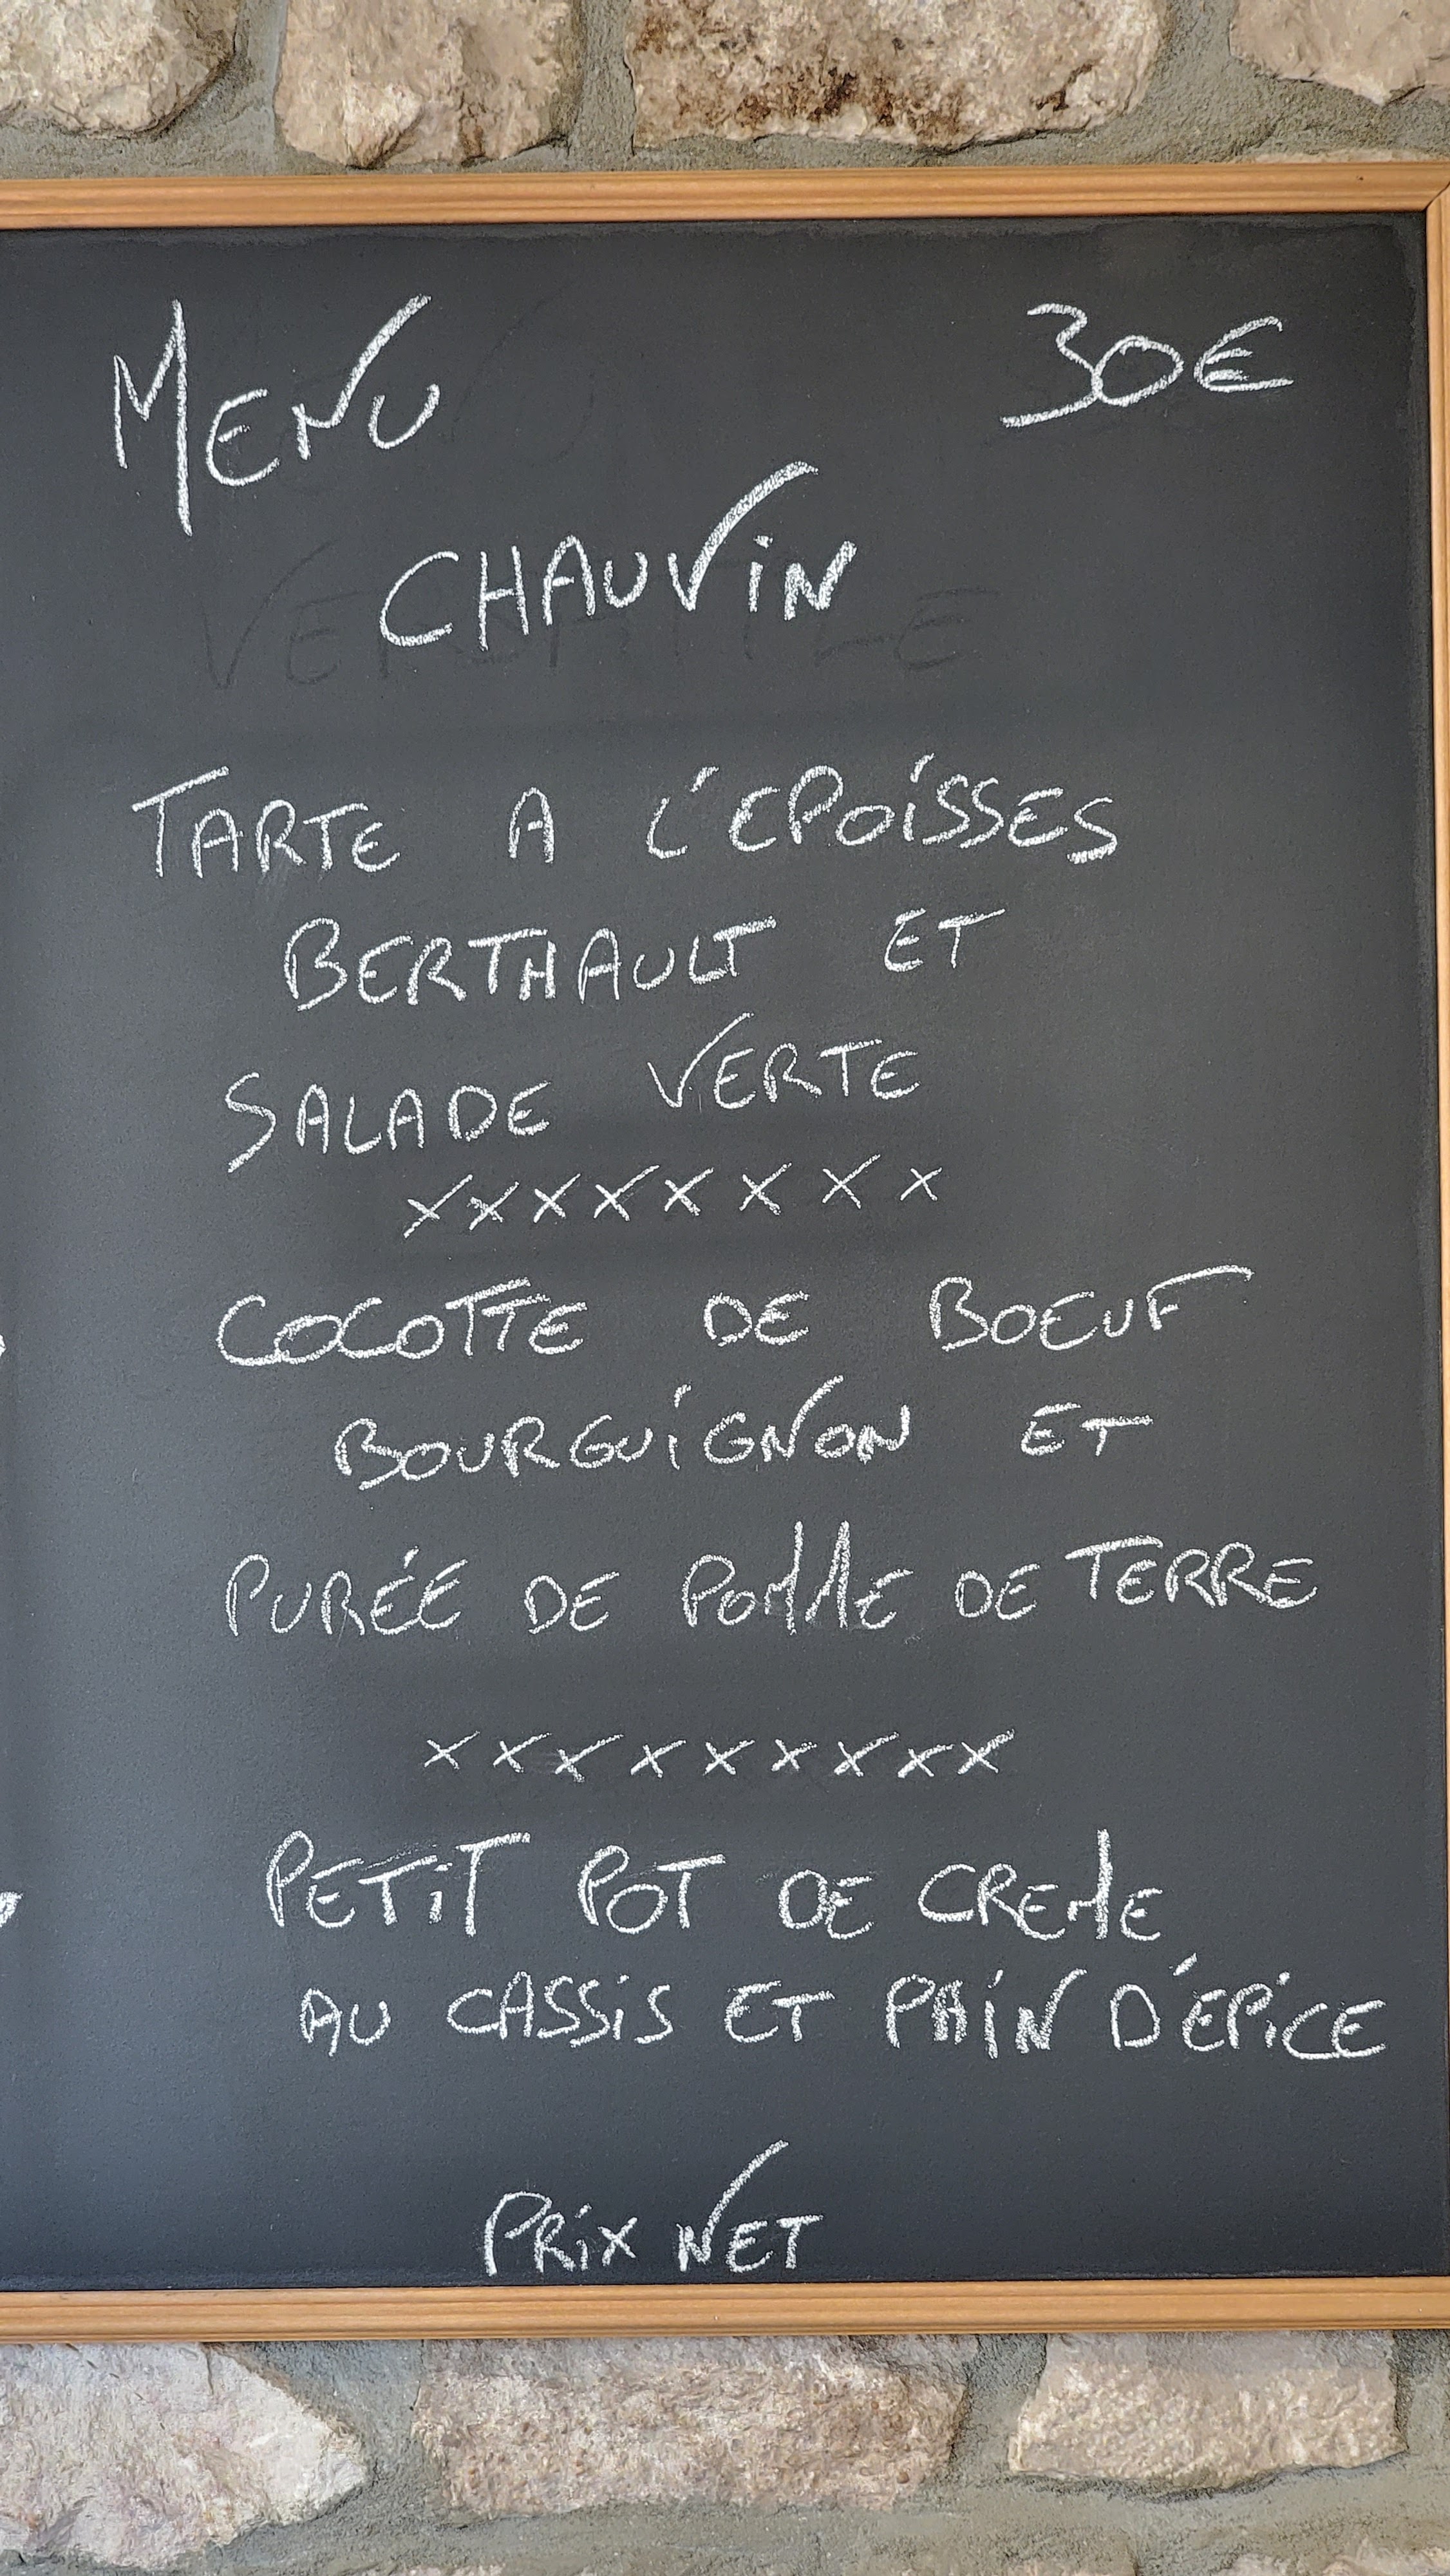 MENU 30€
CHAUVIN
TARTE A L'EPOISSES
BERTHAULT ET
SALADE VERTE
xxxxxxxx
COCOTTE DE BOEUF
BOURGUIGNON ET
PURÉE DE POMME DE TERRE
xxxxxxxxx
PETIT POT DE CREME
AU CASSIS ET PAIN D'ÉPICE
PRIX NET